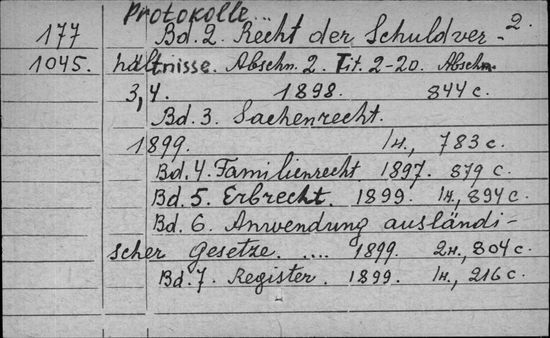 Protokolle
177 Bd. 2. Recht der Schuldver- 2.
1045. hältnisse. Abschn. 2. Tit. 2-20. Abschn.
3,4. 1898. 844 c.
Bd. 3. Sachenrecht.
1899. 1н., 783 c.
Bd. 4. Familienrecht 1897. 879 c.
Bd. 5. Erbrecht. 1899. 1н., 894 c.
Bd. 6. Anwendung ausländi-
scher Gesetze. .... 1899. 2н., 804 c.
Bd. 7. Register. 1899. 1н., 216 c.